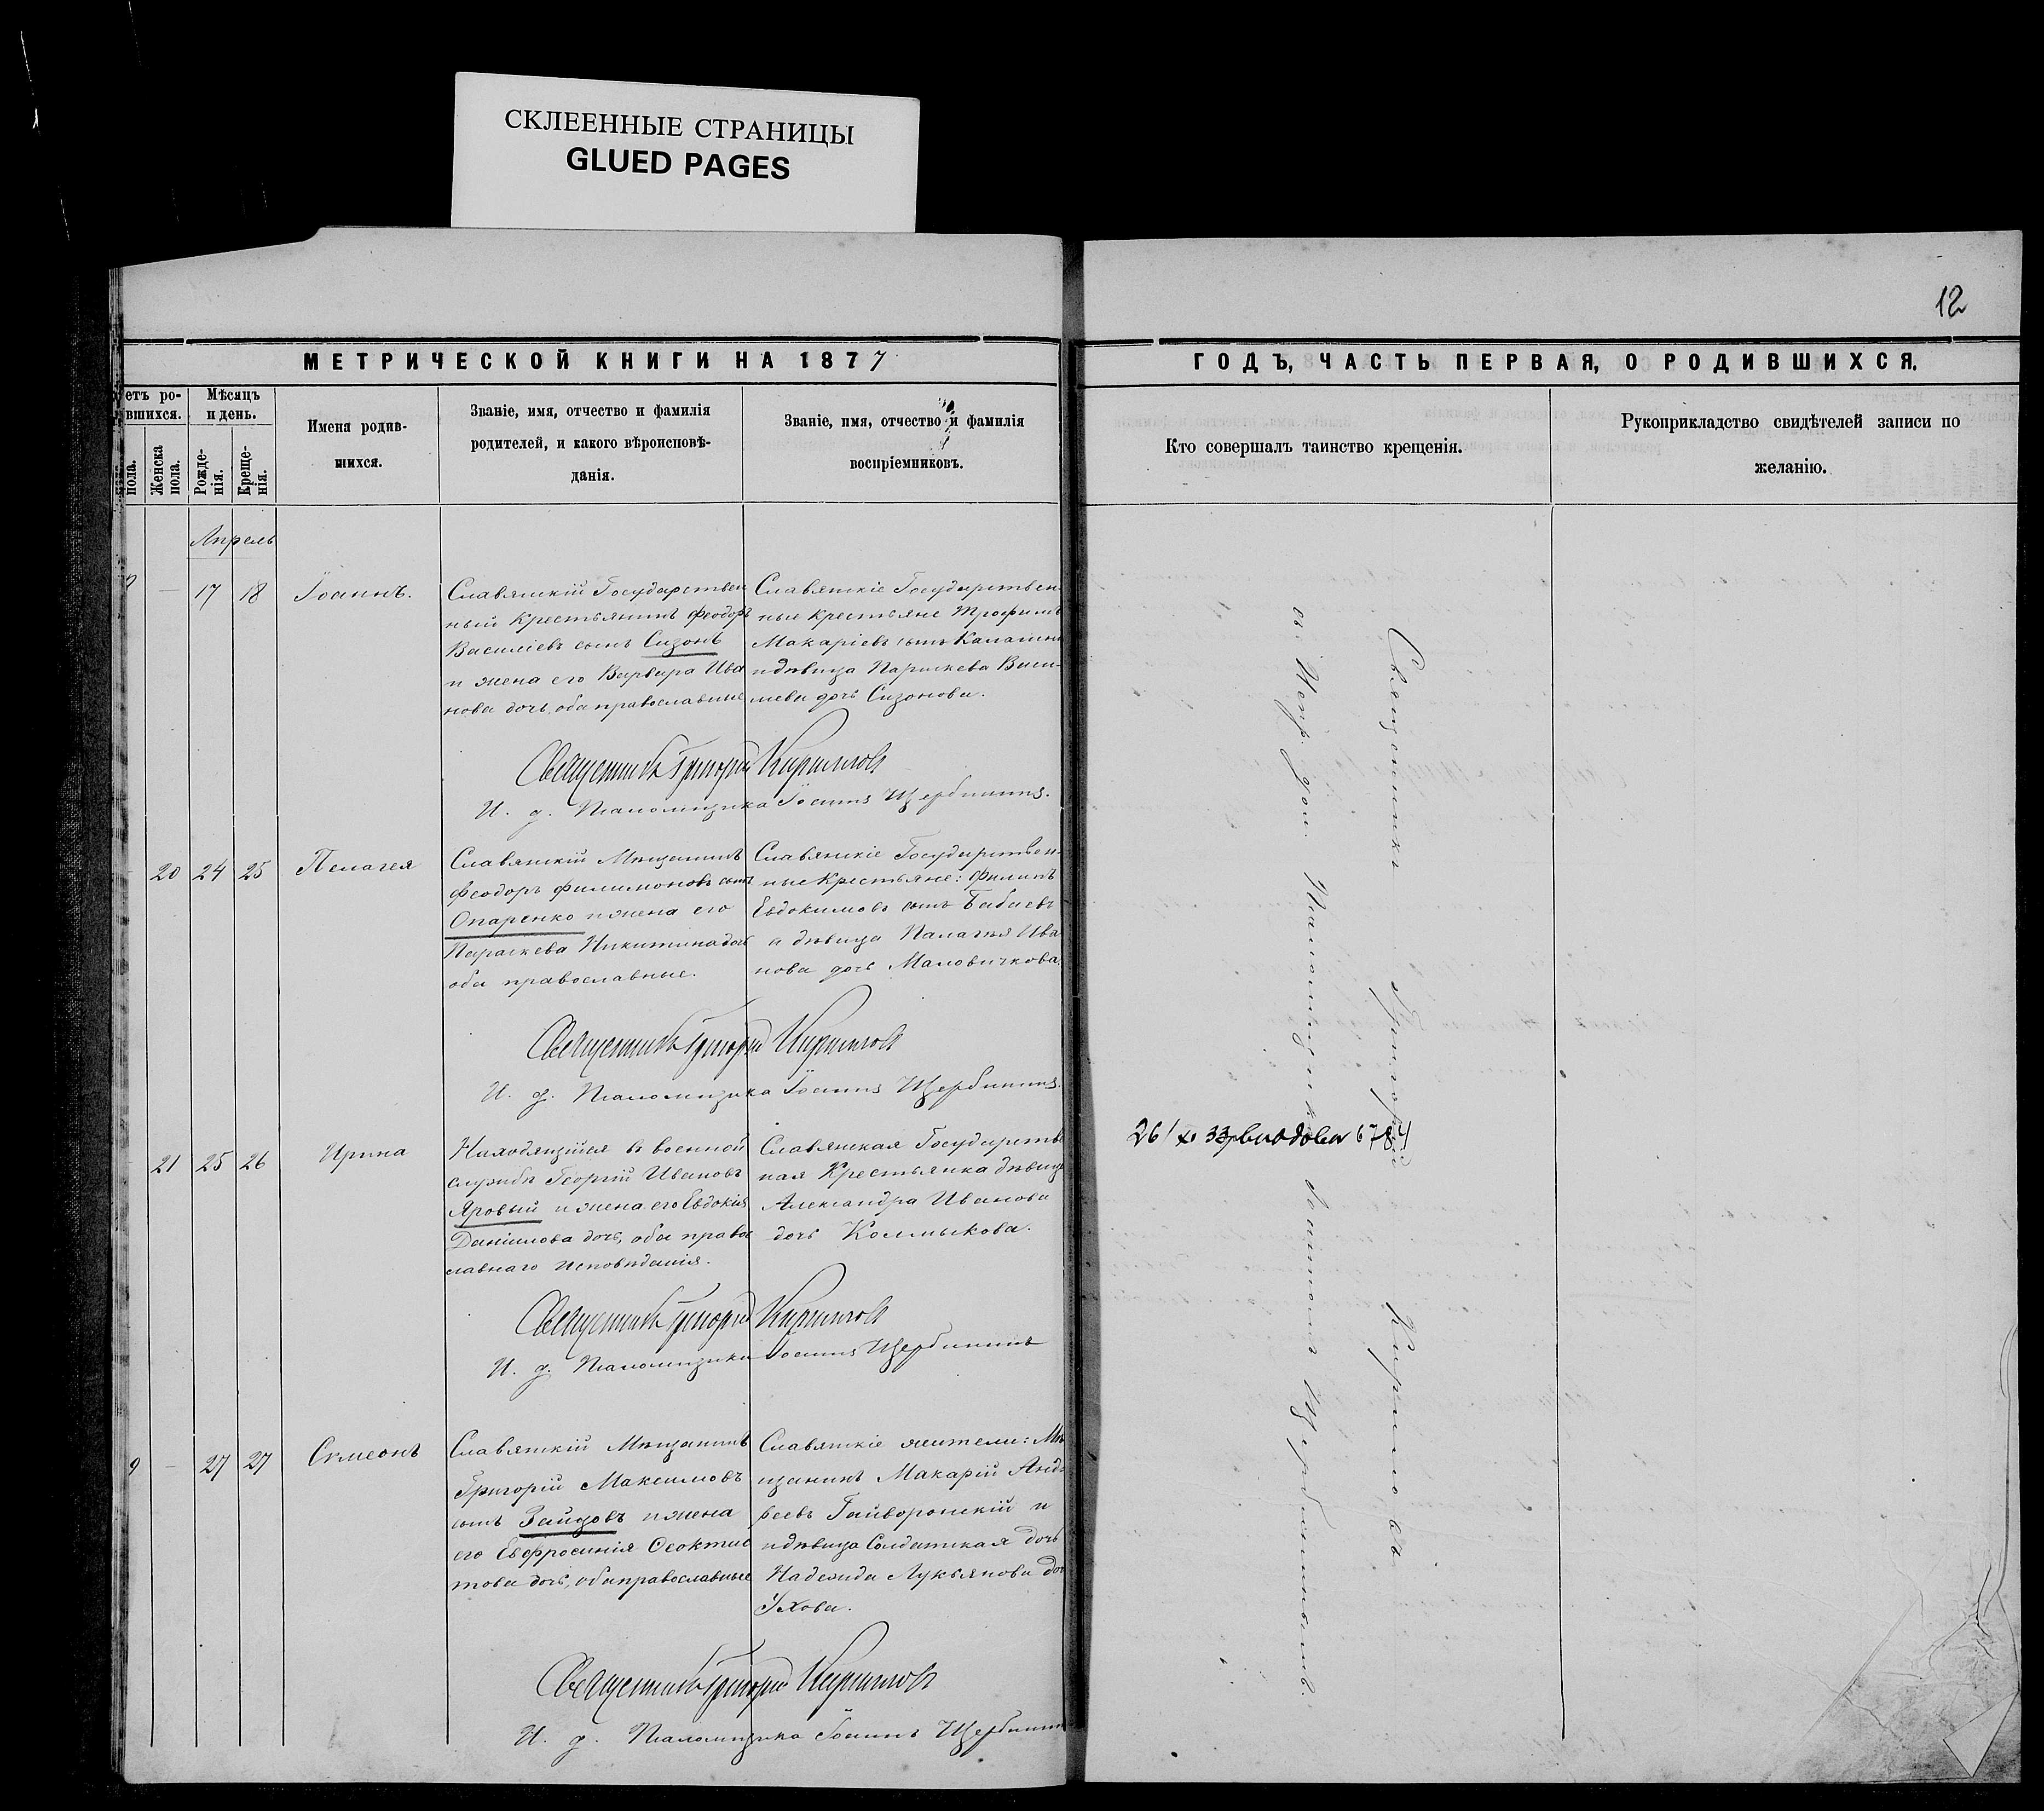 СКЛЕЕННЫЕ СТРАНИЦЫ
GLUED PAGES
12
МЕТРИЧЕСКОЙ КНИГИ НА 1877
ГОДЪ, ЧАСТЬ ПЕРВАЯ, О РОДИВШИХСЯ.
етъ ро-
вшихся.
пола.
Женска
пола.
Мѣсяцъ
и день.
Рожде-
нія.
Креще-
нія.
Имена родив-
шихся.
Званіе, имя, отчество и фамилія
родителей, и какого вѣроисповѣ-
данія.
Званіе, имя, отчество и фамилія
воспріемниковъ.
Кто совершалъ таинство крещенія.
Рукоприкладство свидѣтелей записи по
желанію.
Апрель
17 18 Іоаннъ.
Славянскій Государствен
ный Крестьянинъ Феодоръ
Василіевъ сынъ Сизонъ
и жена его Варвара Ива
нова дочь, оба православные
Славянскіе Государствен
ные крестьяне Трофимъ
Макаріевъ сынъ Калашни
и дѣвица Параскева Васи-
лиева дочь Сизонова.
Священникъ Григорій Кириловъ
И. д. Псаломщика Іоаннъ Щербининъ.
20 24 25 Пелагея
Славянскій Мѣщанинъ
Феодоръ Филимоновъ сынъ
Опаренко и жена его
Параскева Никитина дочь
оба православные.
Славянскіе Государствен-
ные Крестьяне: Филипъ
Евдокимовъ сынъ Бабаевъ
и дѣвица Палагея Ива
нова дочь Маловичкова.
Священникъ Григорій Кириловъ
И. д. Псаломщика Іоаннъ Щербининъ.
21 25 26 Ирина
Находящійся въ военной
службѣ Георгій Ивановъ
Яровый и жена его Евдокія
Даніилова дочь, оба право
славнаго исповѣданія.
Славянская Государстве
ная Крестьянка дѣвица
Александра Иванова
дочь Колмыкова.
Священникъ Григорій Кириловъ
И. д. Псаломщика Іоаннъ Щербининъ
9 27 27 Сѵмеонъ
Славянскій Мѣщанинъ
Григорій Максимовъ
сынъ Зайцовъ и жена
его Евфросинія Феоктис
това дочь, оба православные
Славянскіе жители: Мѣ
щанинъ Макарій Анд-
реевъ Гайворонскій и
и дѣвица Солдатская дочь
Надежда Лукьянова доч
Ухова.
Священникъ Григорій Кириловъ
И. д. Псаломщика Іоаннъ Щербинин
Священникъ Григорій Кириловъ
Псаломщика Іоаннъ Щербининъ.